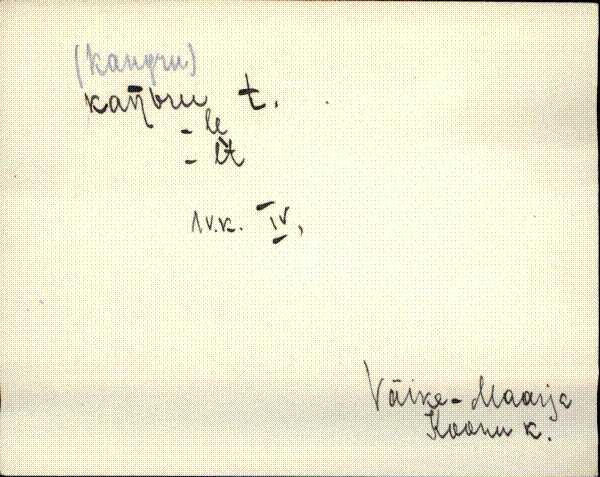 (kangru)
kaŋ̄gru t.
- le
- lt
Iv.k. IV,
Väike-Maarja
Koonu k.